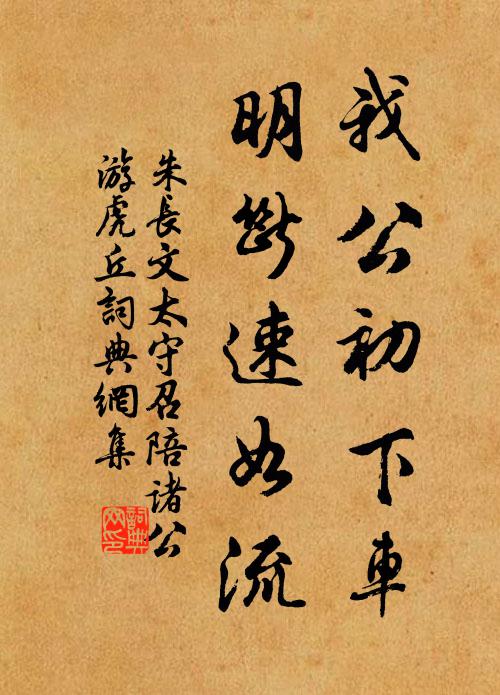 我公初下車
明斷速如流
朱長文太守召陪諸公
游虎丘詞典網集
詞典網印